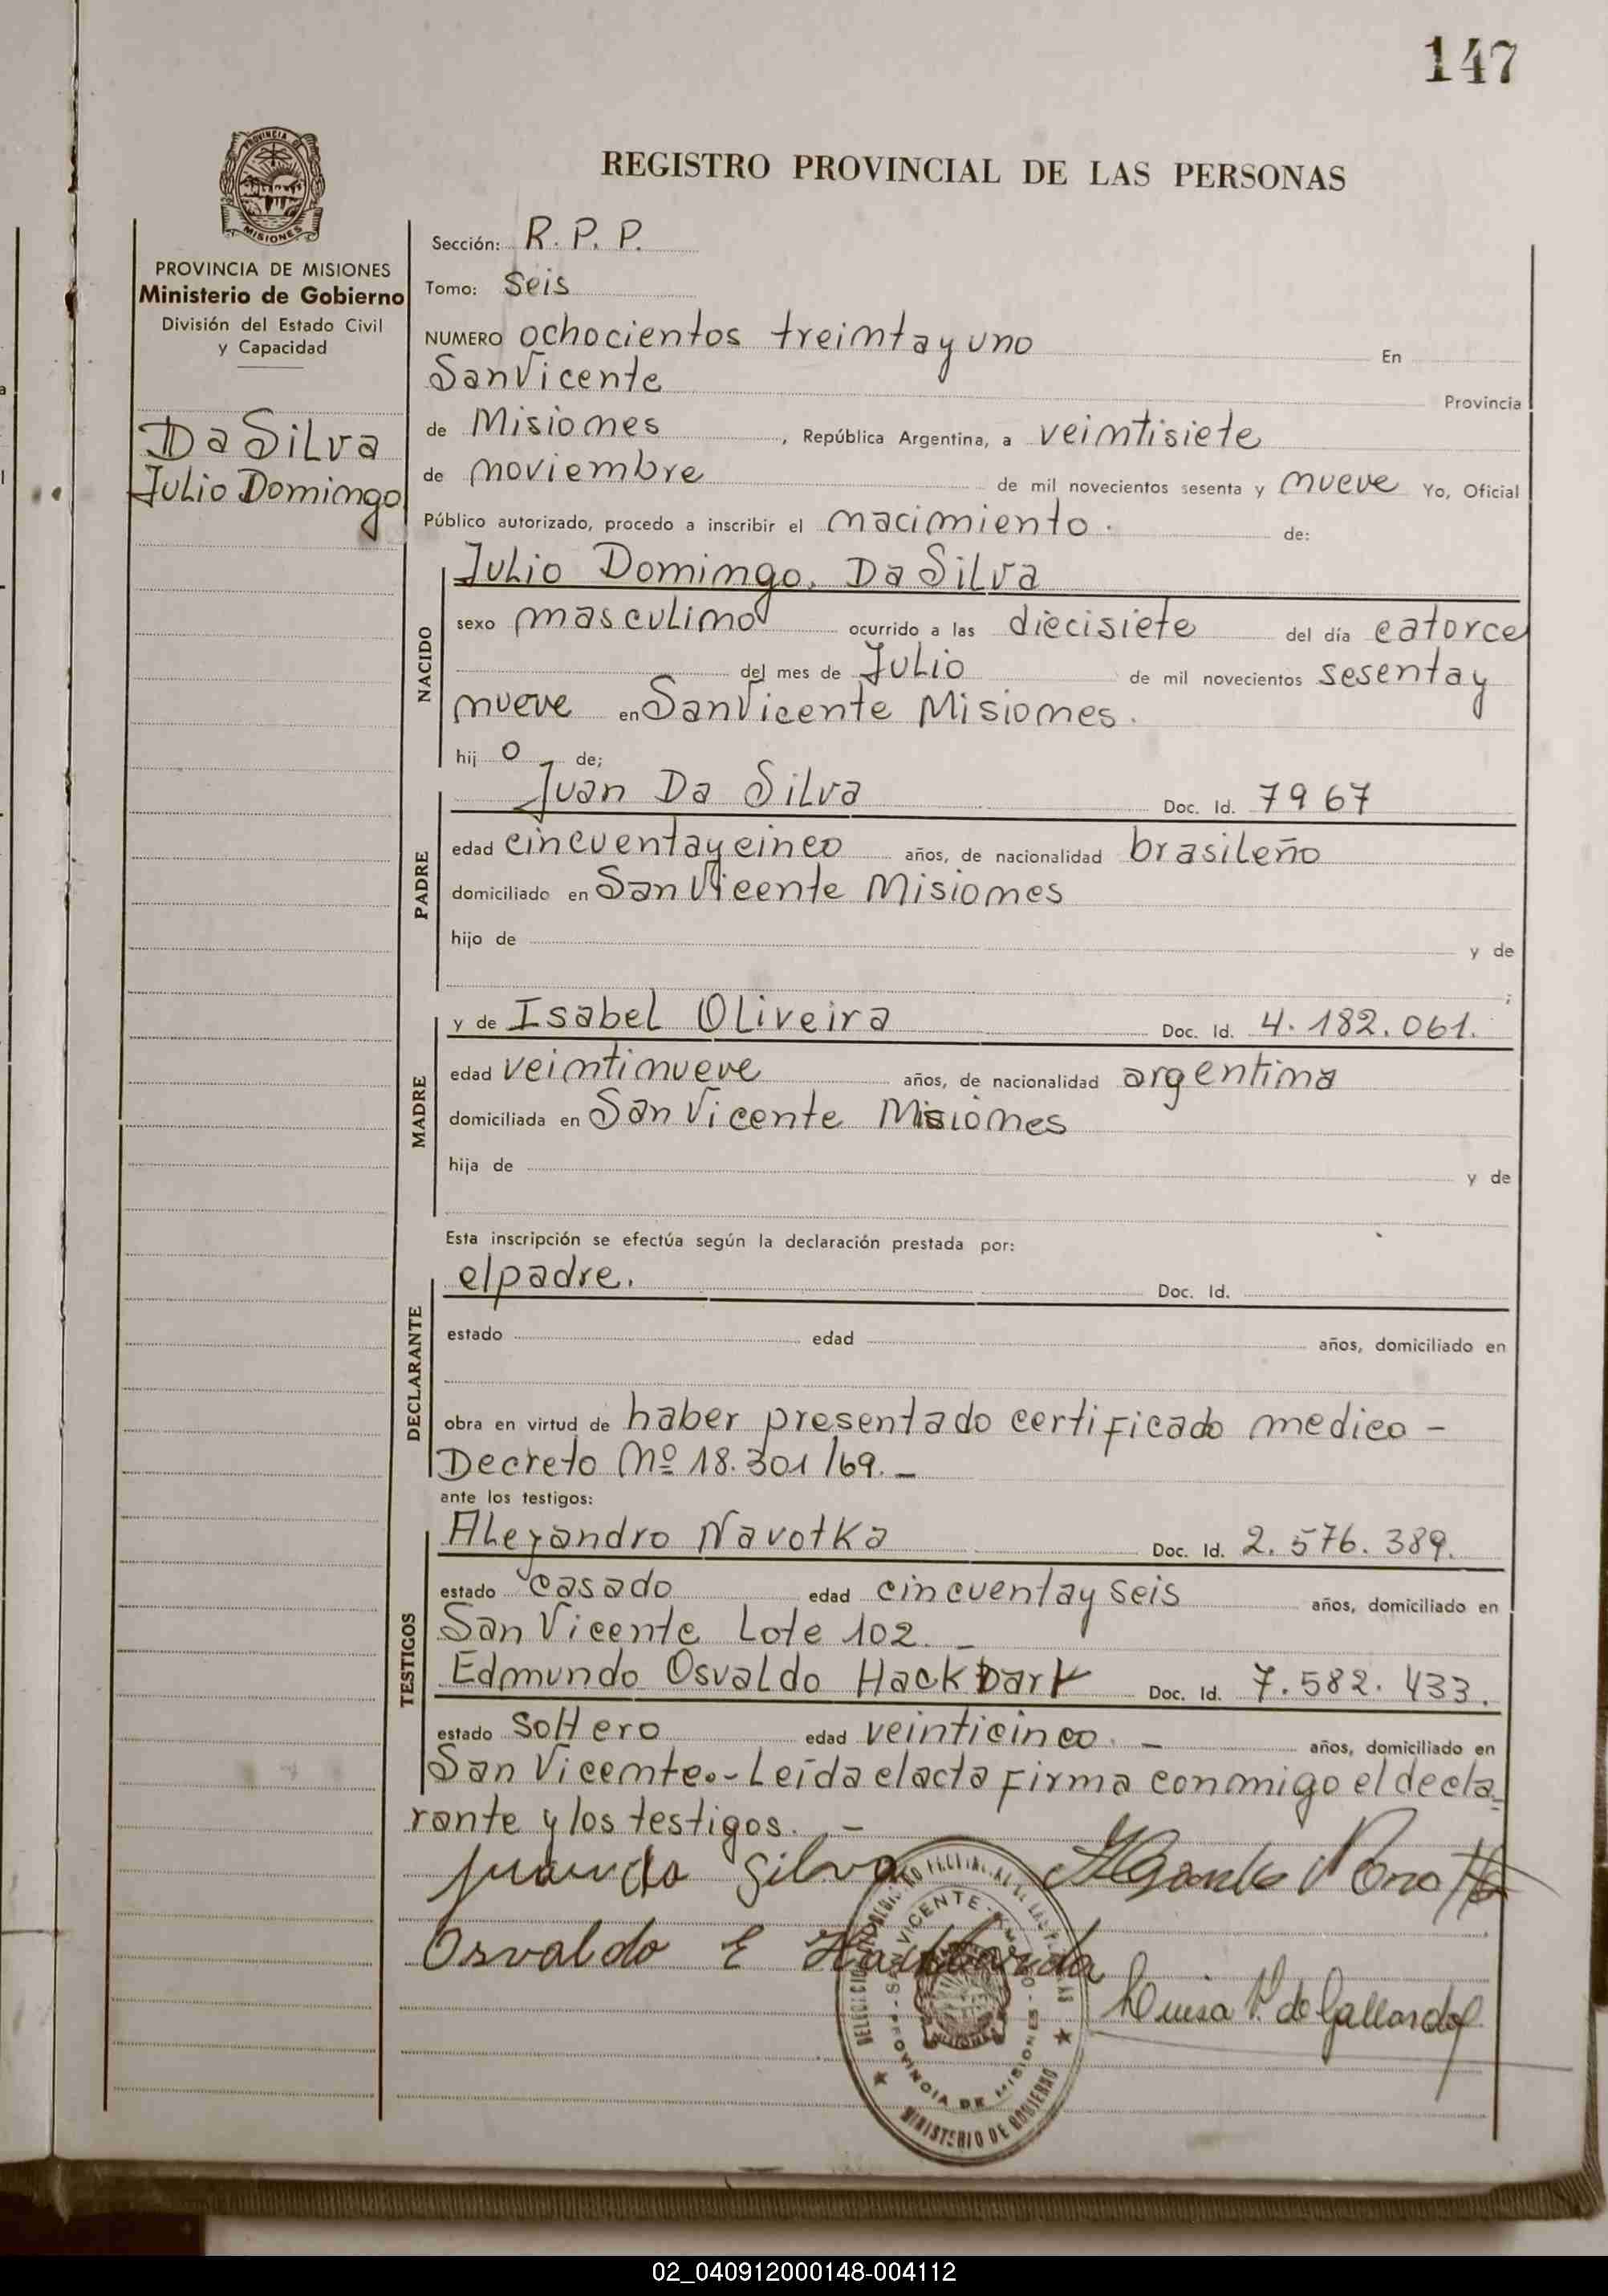 147
REGISTRO PROVINCIAL DE LAS PERSONAS
PROVINCIA DE MISIONES
PROVINCIA DE MISIONES
Ministerio de Gobierno
División del Estado Civil
y Capacidad
Da Silva
Julio Domingo
Sección: R. P. P.
Tomo: Seis
NUMERO ochocientos treinta y uno En
San Vicente Provincia
de Misiones, República Argentina, a veintisiete
de noviembre de mil novecientos sesenta y nueve Yo, Oficial
Público autorizado, procedo a inscribir el nacimiento. de:
NACIDO
Julio Domingo. Da Silva
sexo masculino ocurrido a las diecisiete del día catorce
del mes de Julio de mil novecientos sesenta y
nueve en San Vicente Misiones.
hij o de;
PADRE
Juan Da Silva Doc. Id. 7967
edad cincuenta y cinco años, de nacionalidad brasileño
domiciliado en San Vicente Misiones
hijo de y de
;
MADRE
y de Isabel Oliveira Doc. Id. 4.182.061.
edad veintinueve años, de nacionalidad argentina
domiciliada en San Vicente Misiones
hija de y de
Esta inscripción se efectúa según la declaración prestada por:
DECLARANTE
el padre. Doc. Id.
estado edad años, domiciliado en
obra en virtud de haber presentado certificado medico -
Decreto Nº 18.301/69. -
ante los testigos:
TESTIGOS
Alejandro Navotka Doc. Id. 2.576.389.
estado casado edad cincuenta y seis años, domiciliado en
San Vicente Lote 102. -
Edmundo Osvaldo Hackbart Doc. Id. 7.582.433.
estado soltero edad veinticinco. - años, domiciliado en
San Vicente.- Leída el acta firma conmigo el decla-
rante y los testigos. -
Juan da Silva
Osvaldo E
Luisa V. de Gallardo
SAN VICENTE
PROVINCIA DE MISIONES
MINISTERIO DE GOBIERNO
02_040912000148-004112